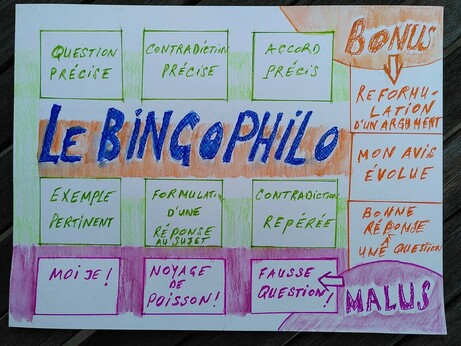 QUESTION
PRÉCISE
CONTRADICTION
PRÉCISE
ACCORD
PRÉCIS
BONUS
REFORMU-
LATION
D'UN ARGUMENT
LE BINGOPHILO
MON AVIS
ÉVOLUE
EXEMPLE
PERTINENT
FORMULATION
D'UNE
RÉPONSE
AU SUJET
CONTRADICTION
REPÉRÉE
BONNE
RÉPONSE
À
UNE QUESTION
MOI JE !
NOYAGE
DE
POISSON !
FAUSSE
QUESTION !
MALUS